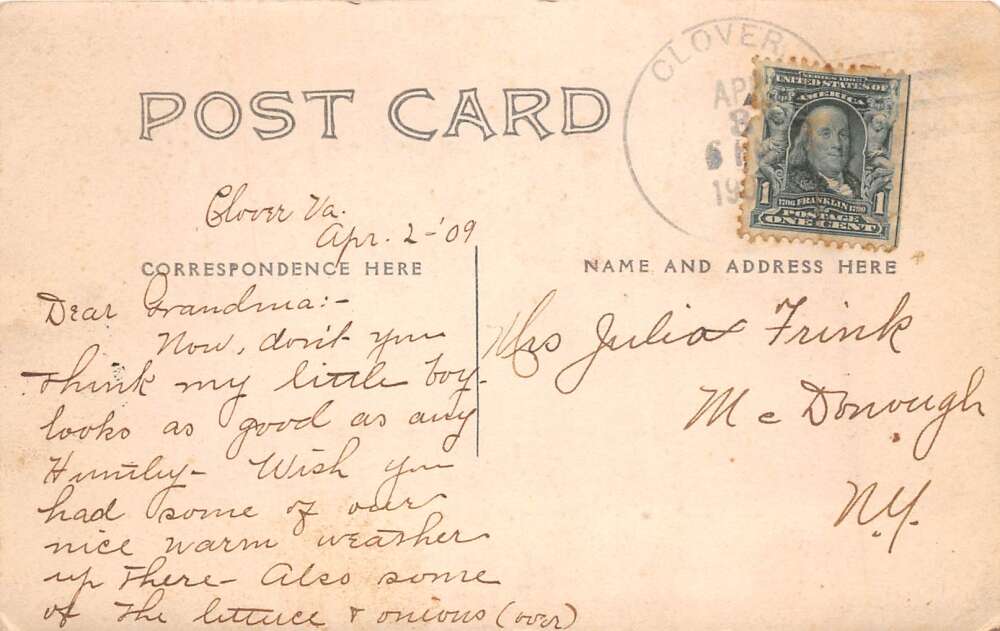 CLOVER
APR
8
6 P
190
SERIES 1902
UNITED STATES OF
AMERICA
1 1706 FRANKLIN 1790 1
POSTAGE
ONE CENT
POST CARD
Clover Va.
Apr. 2-'09
CORRESPONDENCE HERE
NAME AND ADDRESS HERE
Dear Grandma:-
Now, don't you
think my little boy
looks as good as any
Huntley- Wish you
had some of our
nice warm weather
up there- Also some
of the lettuce & onions (over)
Mrs Julia Frink
McDonough
N.Y.